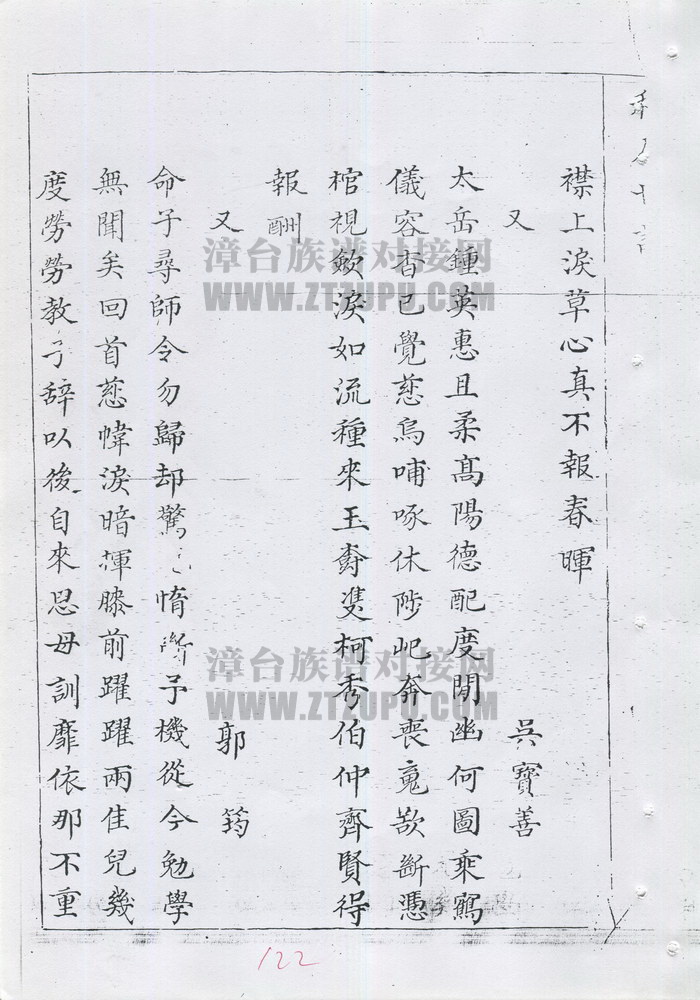 襟上淚草心真不報春暉
又 吳寶善
太岳鍾英惠且柔高陽德配度閒幽何圖乘鸞
儀容杳已覺慈烏哺啄休陟屺奔喪䰟欲斷憑
棺視斂淚如流種來玉樹雙柯秀伯仲齊賢得
報酬
又 郭筠
命子尋師令勿歸却驚 惰斷予機從今勉學
無聞矣回首慈幃淚暗渾膝前躍躍兩佳兒幾
度勞勞教子辭以後自來思母訓靡依那不重
122
漳台族谱对接网
WWW.ZTZUPU.COM
漳台族谱对接网
WWW.ZTZUPU.COM